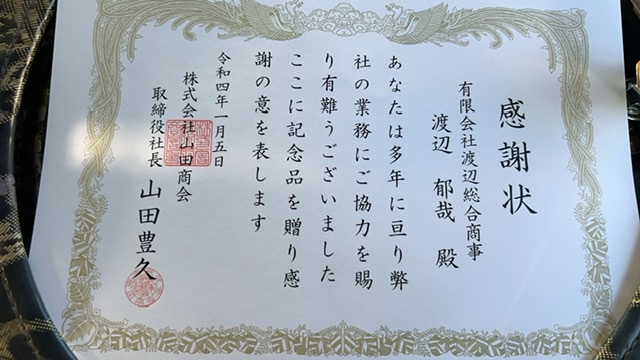 感謝状
有限会社渡辺総合商事
渡辺 郁哉 殿
あなたは多年に亘り弊
社の業務にご協力を賜
り有難うございました
ここに記念品を贈り感
謝の意を表します
令和四年一月五日
株式会社山田商会
取締役社長 山田豊久